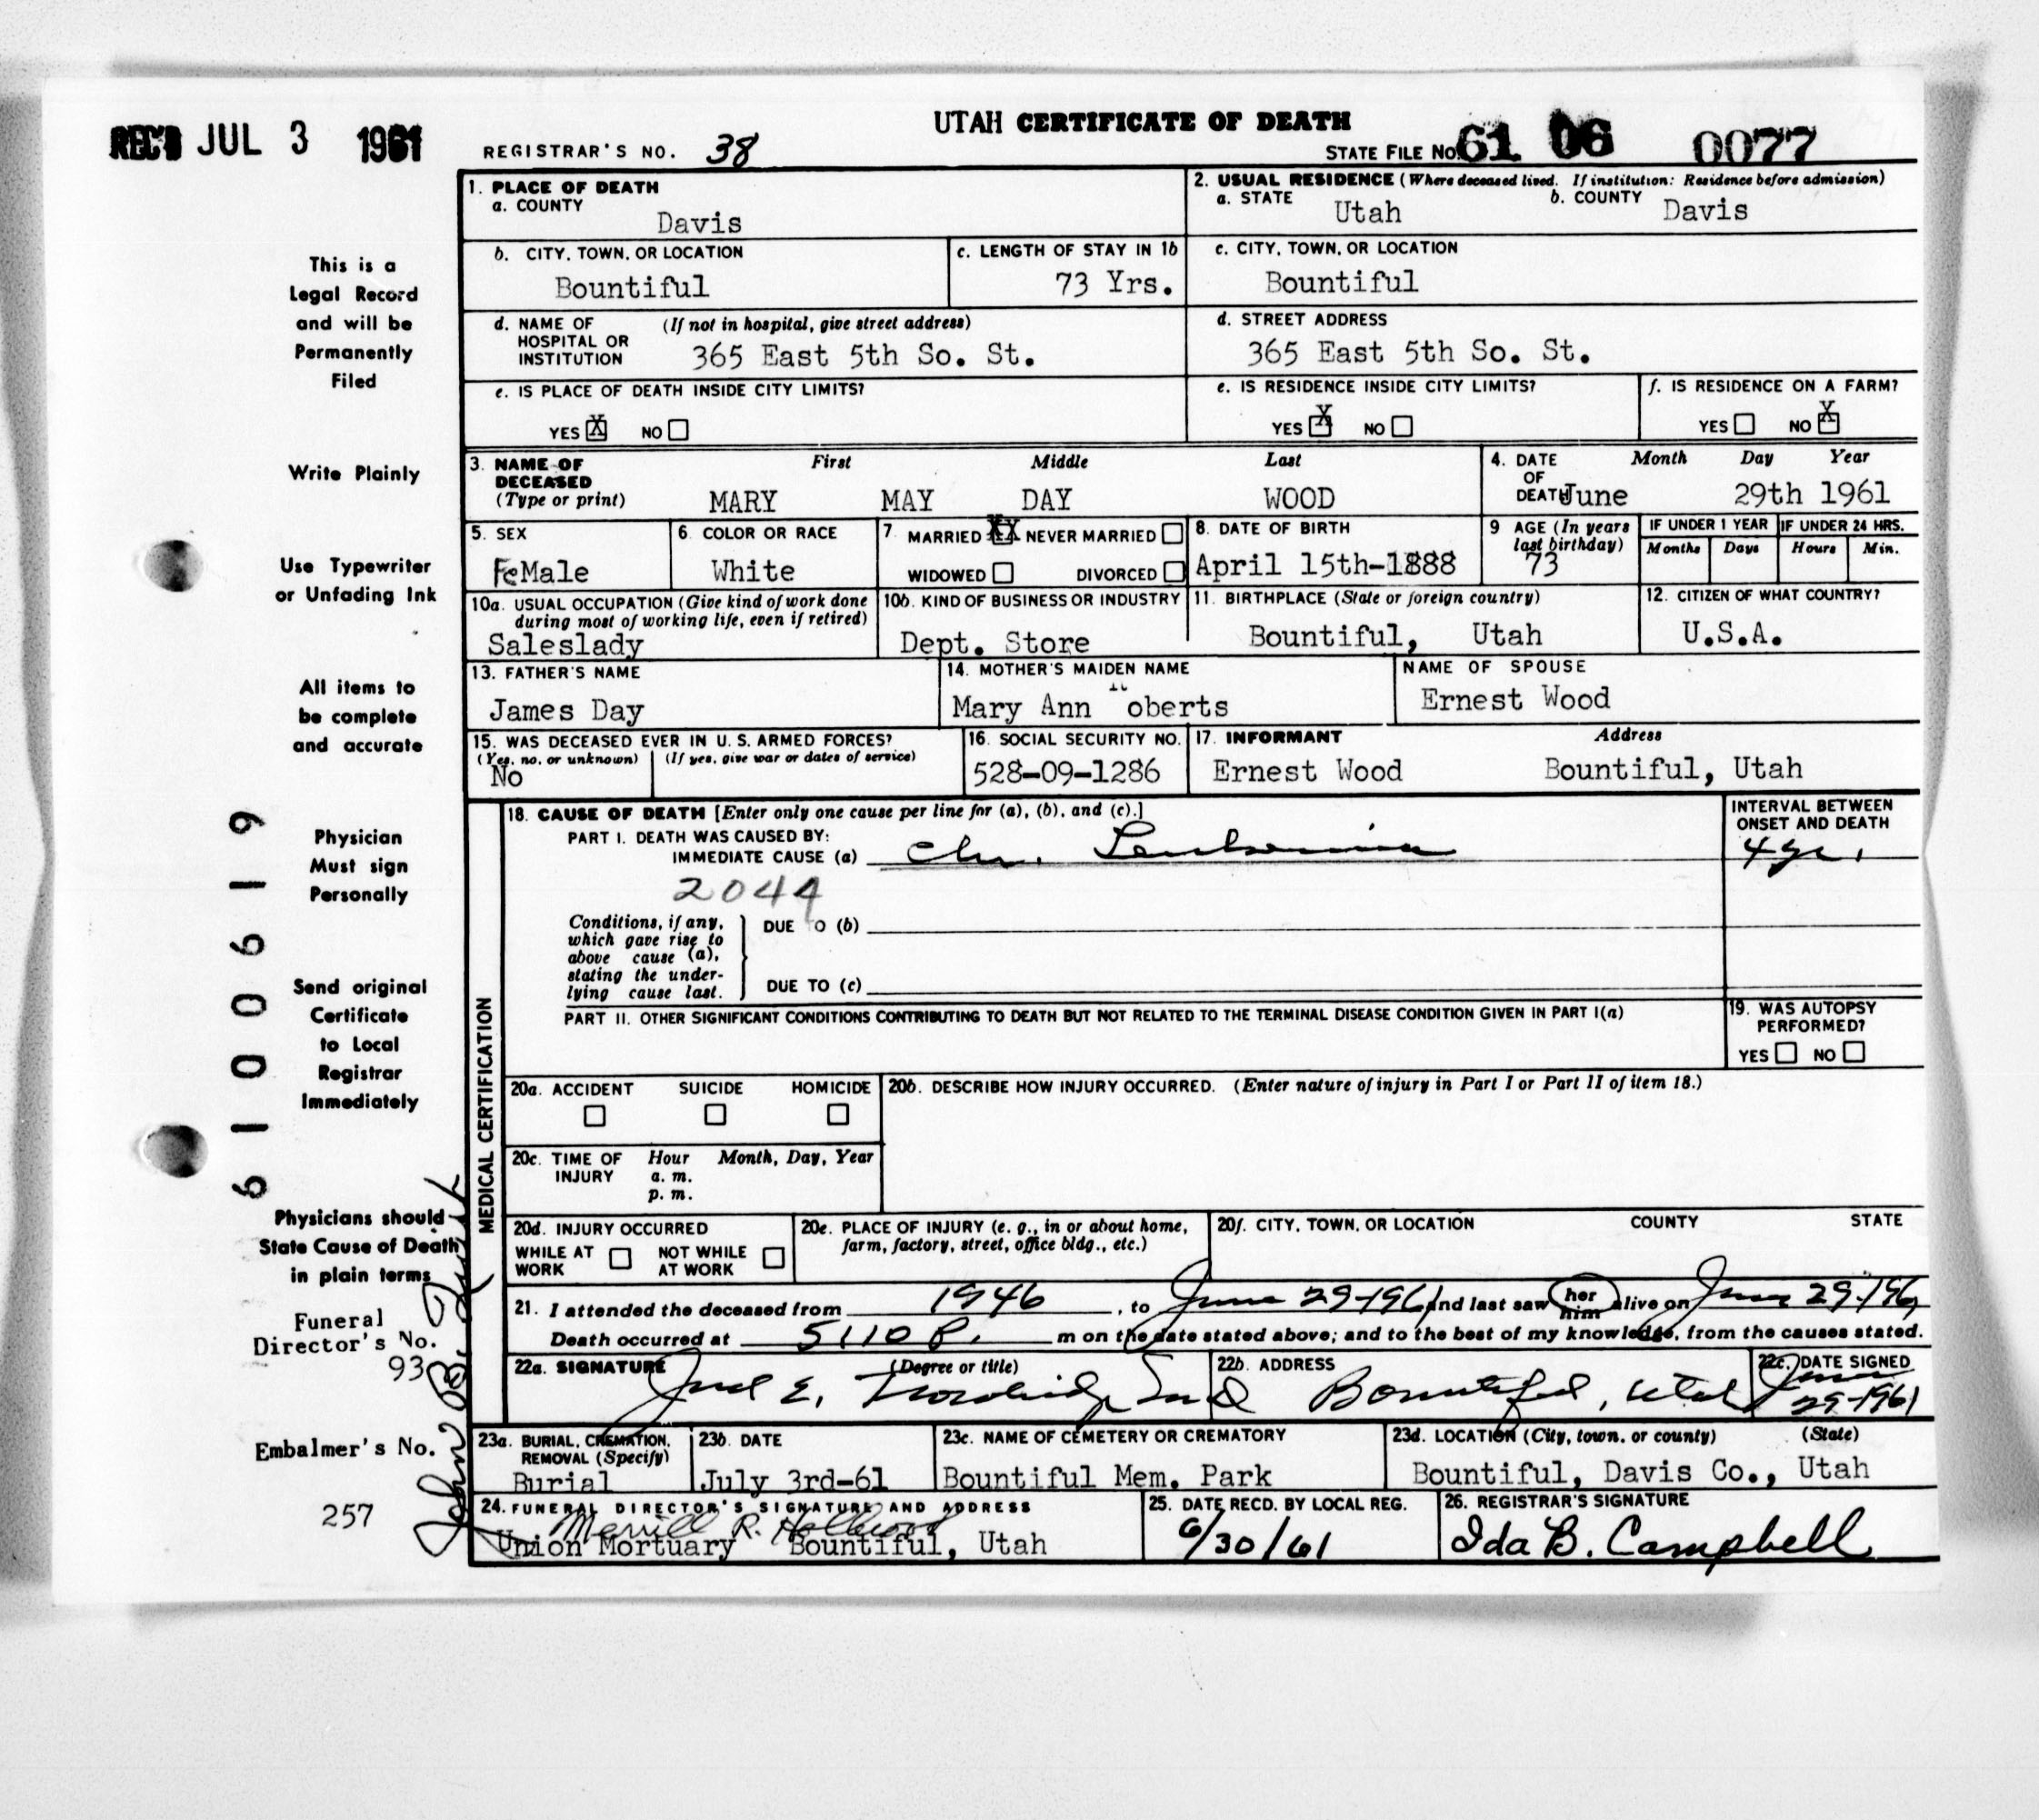 REC'D JUL 3 1961
UTAH CERTIFICATE OF DEATH
REGISTRAR'S NO. 38
STATE FILE NO. 61 06 0077
1. PLACE OF DEATH
a. COUNTY
Davis
2. USUAL RESIDENCE (Where deceased lived. If institution: Residence before admission)
a. STATE Utah b. COUNTY Davis
b. CITY, TOWN, OR LOCATION
Bountiful
c. LENGTH OF STAY IN 1b
73 Yrs.
c. CITY, TOWN, OR LOCATION
Bountiful
d. NAME OF HOSPITAL OR INSTITUTION (If not in hospital, give street address)
365 East 5th So. St.
d. STREET ADDRESS
365 East 5th So. St.
e. IS PLACE OF DEATH INSIDE CITY LIMITS?
YES X NO
e. IS RESIDENCE INSIDE CITY LIMITS?
YES X NO
f. IS RESIDENCE ON A FARM?
YES NO X
3. NAME OF DECEASED (Type or print)
First Middle Last
MARY MAY DAY WOOD
4. DATE OF DEATH Month Day Year
June 29th 1961
5. SEX
FeMale
6. COLOR OR RACE
White
7. MARRIED XX NEVER MARRIED
WIDOWED DIVORCED
8. DATE OF BIRTH
April 15th-1888
9 AGE (In years last birthday)
73
IF UNDER 1 YEAR IF UNDER 24 HRS.
Months Days Hours Min.
10a. USUAL OCCUPATION (Give kind of work done during most of working life, even if retired)
Saleslady
10b. KIND OF BUSINESS OR INDUSTRY
Dept. Store
11. BIRTHPLACE (State or foreign country)
Bountiful, Utah
12. CITIZEN OF WHAT COUNTRY?
U.S.A.
13. FATHER'S NAME
James Day
14. MOTHER'S MAIDEN NAME
Mary Ann Roberts
NAME OF SPOUSE
Ernest Wood
15. WAS DECEASED EVER IN U. S. ARMED FORCES?
(Yes, no, or unknown) (If yes, give war or dates of service)
No
16. SOCIAL SECURITY NO.
528-09-1286
17. INFORMANT Address
Ernest Wood Bountiful, Utah
MEDICAL CERTIFICATION
18. CAUSE OF DEATH [Enter only one cause per line for (a), (b), and (c).]
PART I. DEATH WAS CAUSED BY:
IMMEDIATE CAUSE (a) Chr. Leukemia
2044
INTERVAL BETWEEN ONSET AND DEATH
4 yr.
Conditions, if any, which gave rise to above cause (a), stating the underlying cause last.
DUE TO (b)
DUE TO (c)
PART II. OTHER SIGNIFICANT CONDITIONS CONTRIBUTING TO DEATH BUT NOT RELATED TO THE TERMINAL DISEASE CONDITION GIVEN IN PART I(a)
19. WAS AUTOPSY PERFORMED?
YES NO
20a. ACCIDENT SUICIDE HOMICIDE
20b. DESCRIBE HOW INJURY OCCURRED. (Enter nature of injury in Part I or Part II of item 18.)
20c. TIME OF INJURY Hour Month, Day, Year
a. m.
p. m.
20d. INJURY OCCURRED
WHILE AT WORK NOT WHILE AT WORK
20e. PLACE OF INJURY (e. g., in or about home, farm, factory, street, office bldg., etc.)
20f. CITY, TOWN, OR LOCATION COUNTY STATE
21. I attended the deceased from 1946, to June 29-1961 and last saw her him alive on June 29-196
Death occurred at 5:10 P. m on the date stated above; and to the best of my knowledge, from the causes stated.
22a. SIGNATURE (Degree or title)
E. Trowbridge
22b. ADDRESS
Bountiful, Utah
22c. DATE SIGNED
June 29-1961
23a. BURIAL, CREMATION, REMOVAL (Specify)
Burial
23b. DATE
July 3rd-61
23c. NAME OF CEMETERY OR CREMATORY
Bountiful Mem. Park
23d. LOCATION (City, town, or county) (State)
Bountiful, Davis Co., Utah
24. FUNERAL DIRECTOR'S SIGNATURE AND ADDRESS
Merrill R. Holbrook
Union Mortuary Bountiful, Utah
25. DATE RECD. BY LOCAL REG.
6/30/61
26. REGISTRAR'S SIGNATURE
Ida B. Campbell
This is a
Legal Record
and will be
Permanently
Filed
Write Plainly
Use Typewriter
or Unfading Ink
All items to
be complete
and accurate
Physician
Must sign
Personally
Send original
Certificate
to Local
Registrar
Immediately
Physicians should
State Cause of Death
in plain terms
Funeral
Director's No.
93
Embalmer's No.
257
61000619
John B.